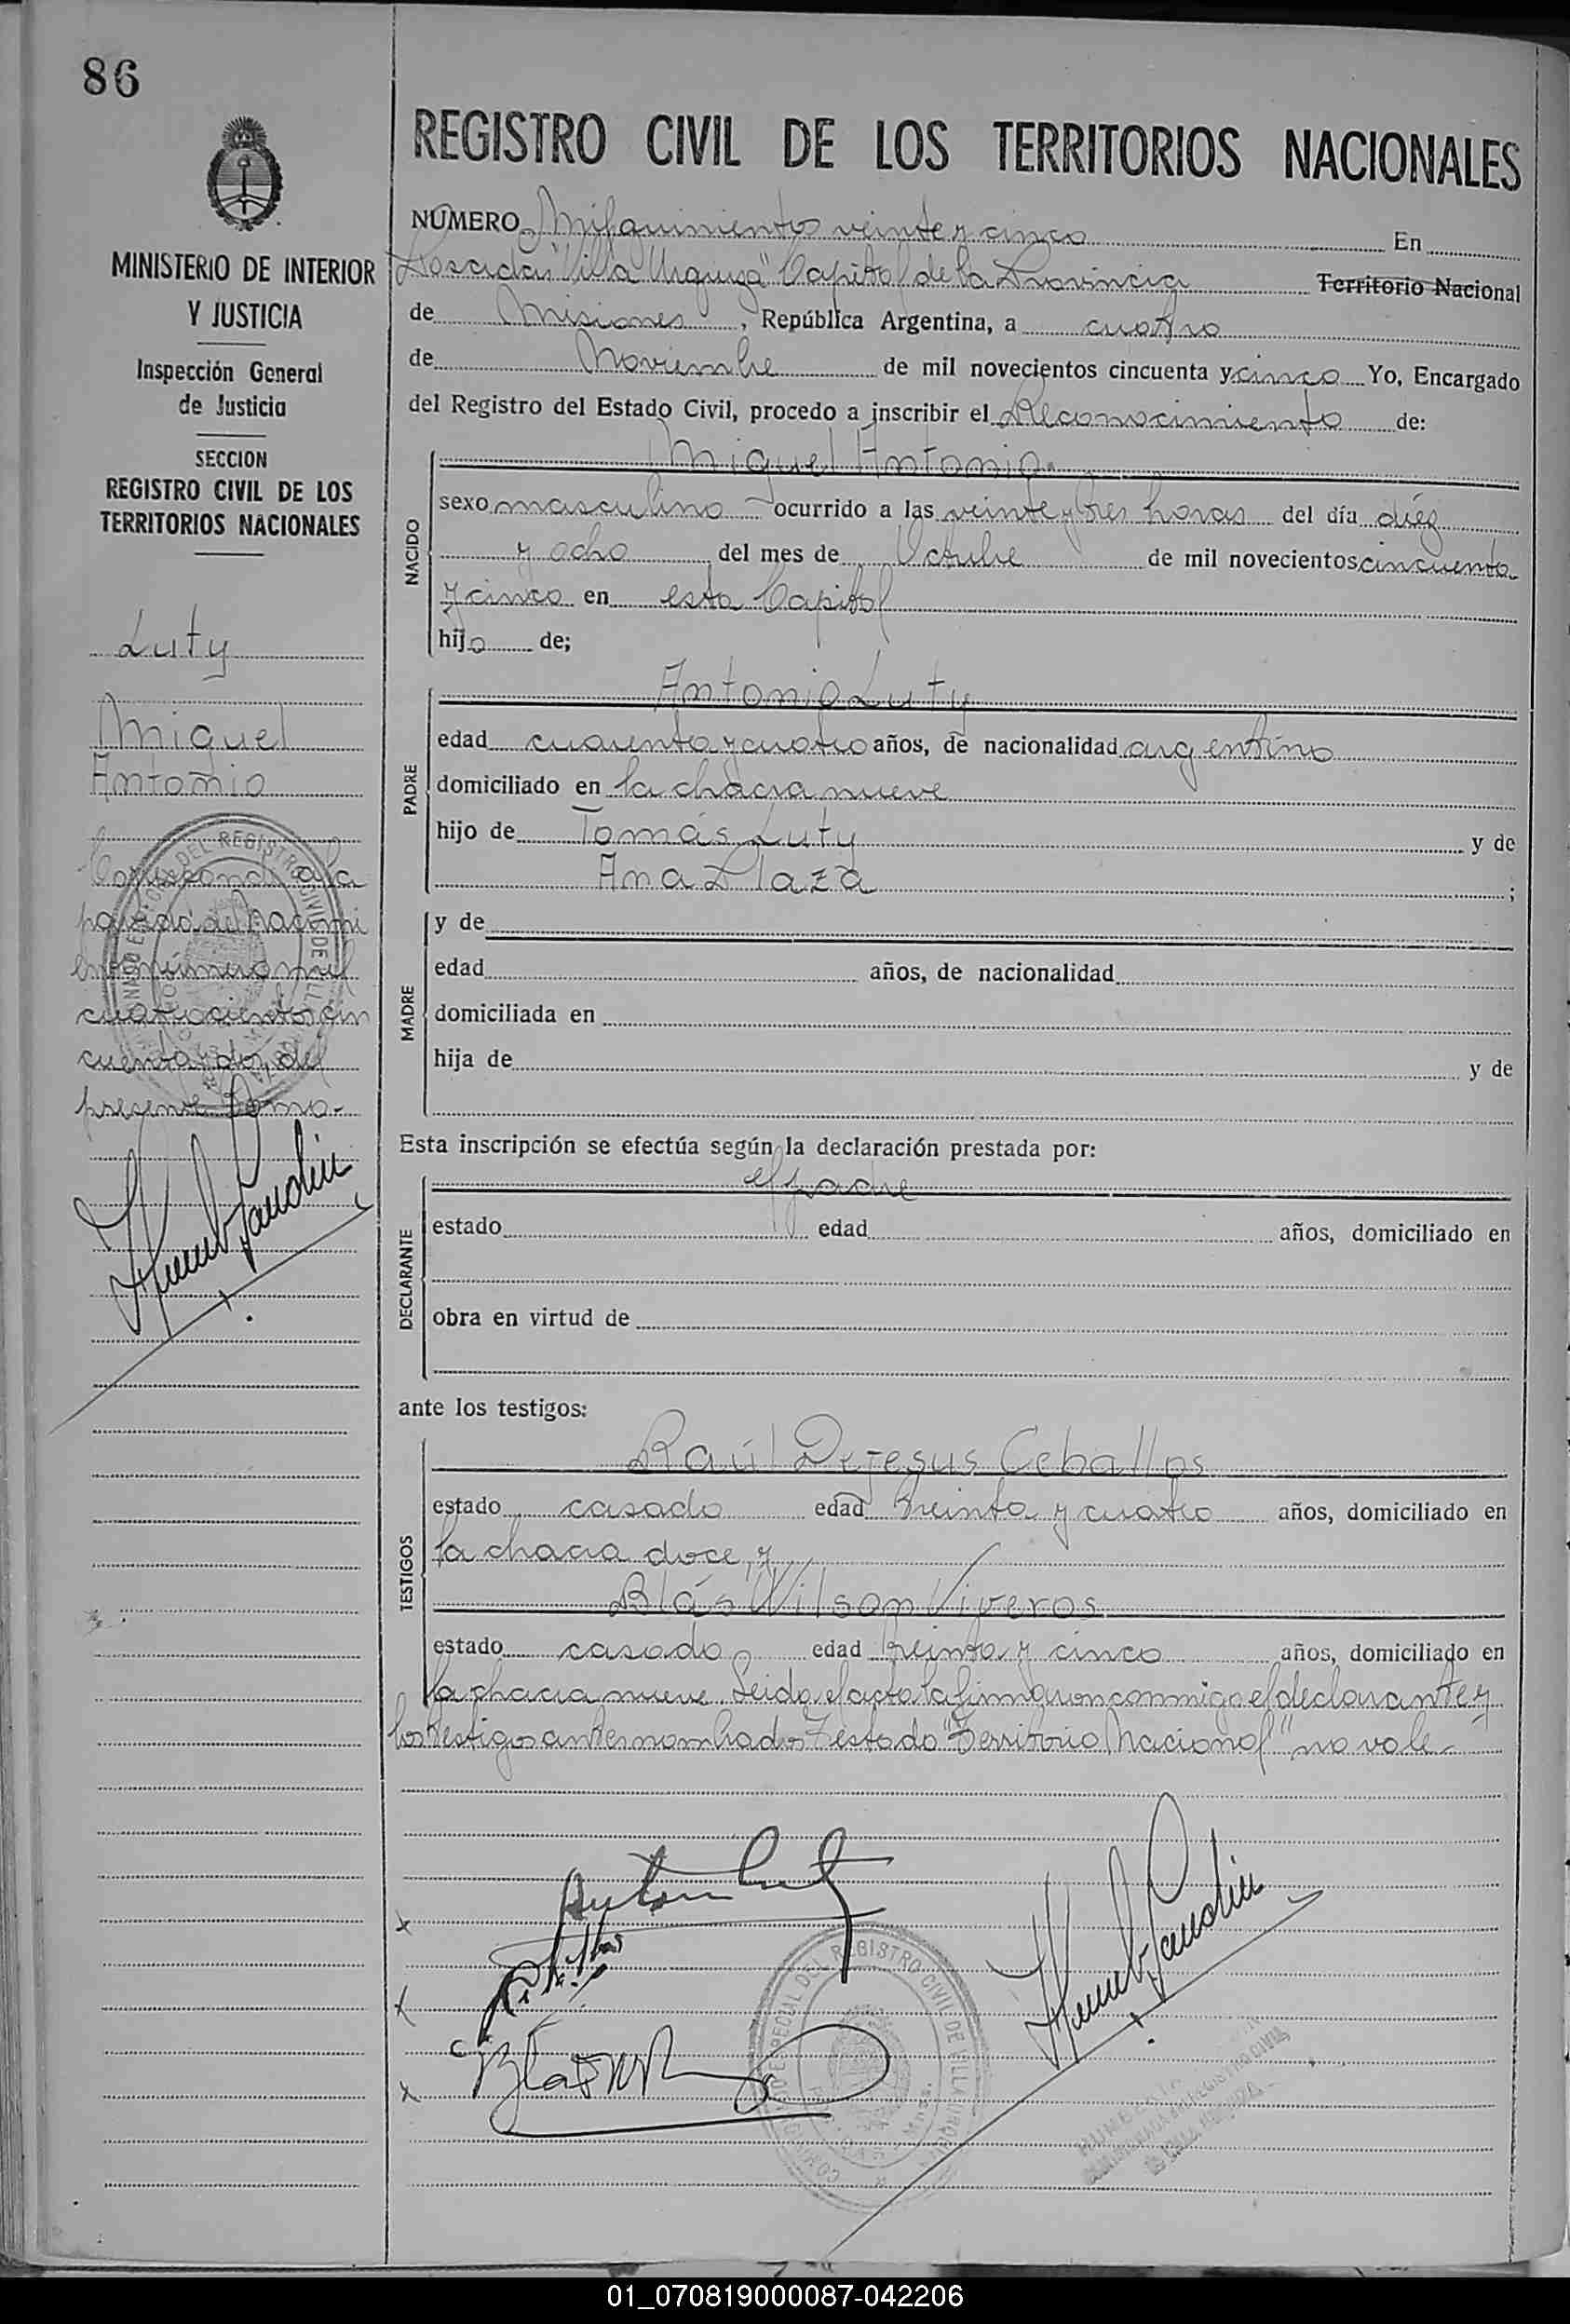 86
REGISTRO CIVIL DE LOS TERRITORIOS NACIONALES
NUMERO Mil quinientos veinte y cinco En
Posadas "Villa Urquiza" Capital de la Provincia Territorio Nacional
de Misiones, República Argentina, a cuatro
de Noviembre de mil novecientos cincuenta y cinco Yo, Encargado
del Registro del Estado Civil, procedo a inscribir el Reconocimiento de:
MINISTERIO DE INTERIOR
Y JUSTICIA
Inspección General
de Justicia
SECCION
REGISTRO CIVIL DE LOS
TERRITORIOS NACIONALES
Luty
Miguel
Antonio
Corresponde a la
partida de nacimi
ento número mil
cuatrocientos cin
cuenta y dos, del
presente tomo.-
NACIDO
Miguel Antonio
sexo masculino ocurrido a las veinte y tres horas del día diéz
y ocho del mes de Octubre de mil novecientos cincuenta
y cinco en esta Capital
hijo de;
PADRE
Antonio Luty
edad cuarenta y cuatro años, de nacionalidad argentino
domiciliado en la chacra nueve
hijo de Tomás Luty y de
Ana Plaza ;
MADRE
y de
edad años, de nacionalidad
domiciliada en
hija de y de
Esta inscripción se efectúa según la declaración prestada por:
DECLARANTE
el padre
estado edad años, domiciliado en
obra en virtud de
ante los testigos:
TESTIGOS
Raúl Dejesus Ceballos
estado casado edad treinta y cuatro años, domiciliado en
la chacra doce, y
Blás Wilson Viveros
estado casado edad treinta y cinco años, domiciliado en
la chacra nueve. Leida el acta la firmaron conmigo el declarante y
los testigos antes nombrados. Testado "Territorio Nacional" no vale.-
Antonio Luty
REGISTRO CIVIL DE VILLA URQUIZA
01_070819000087-042206